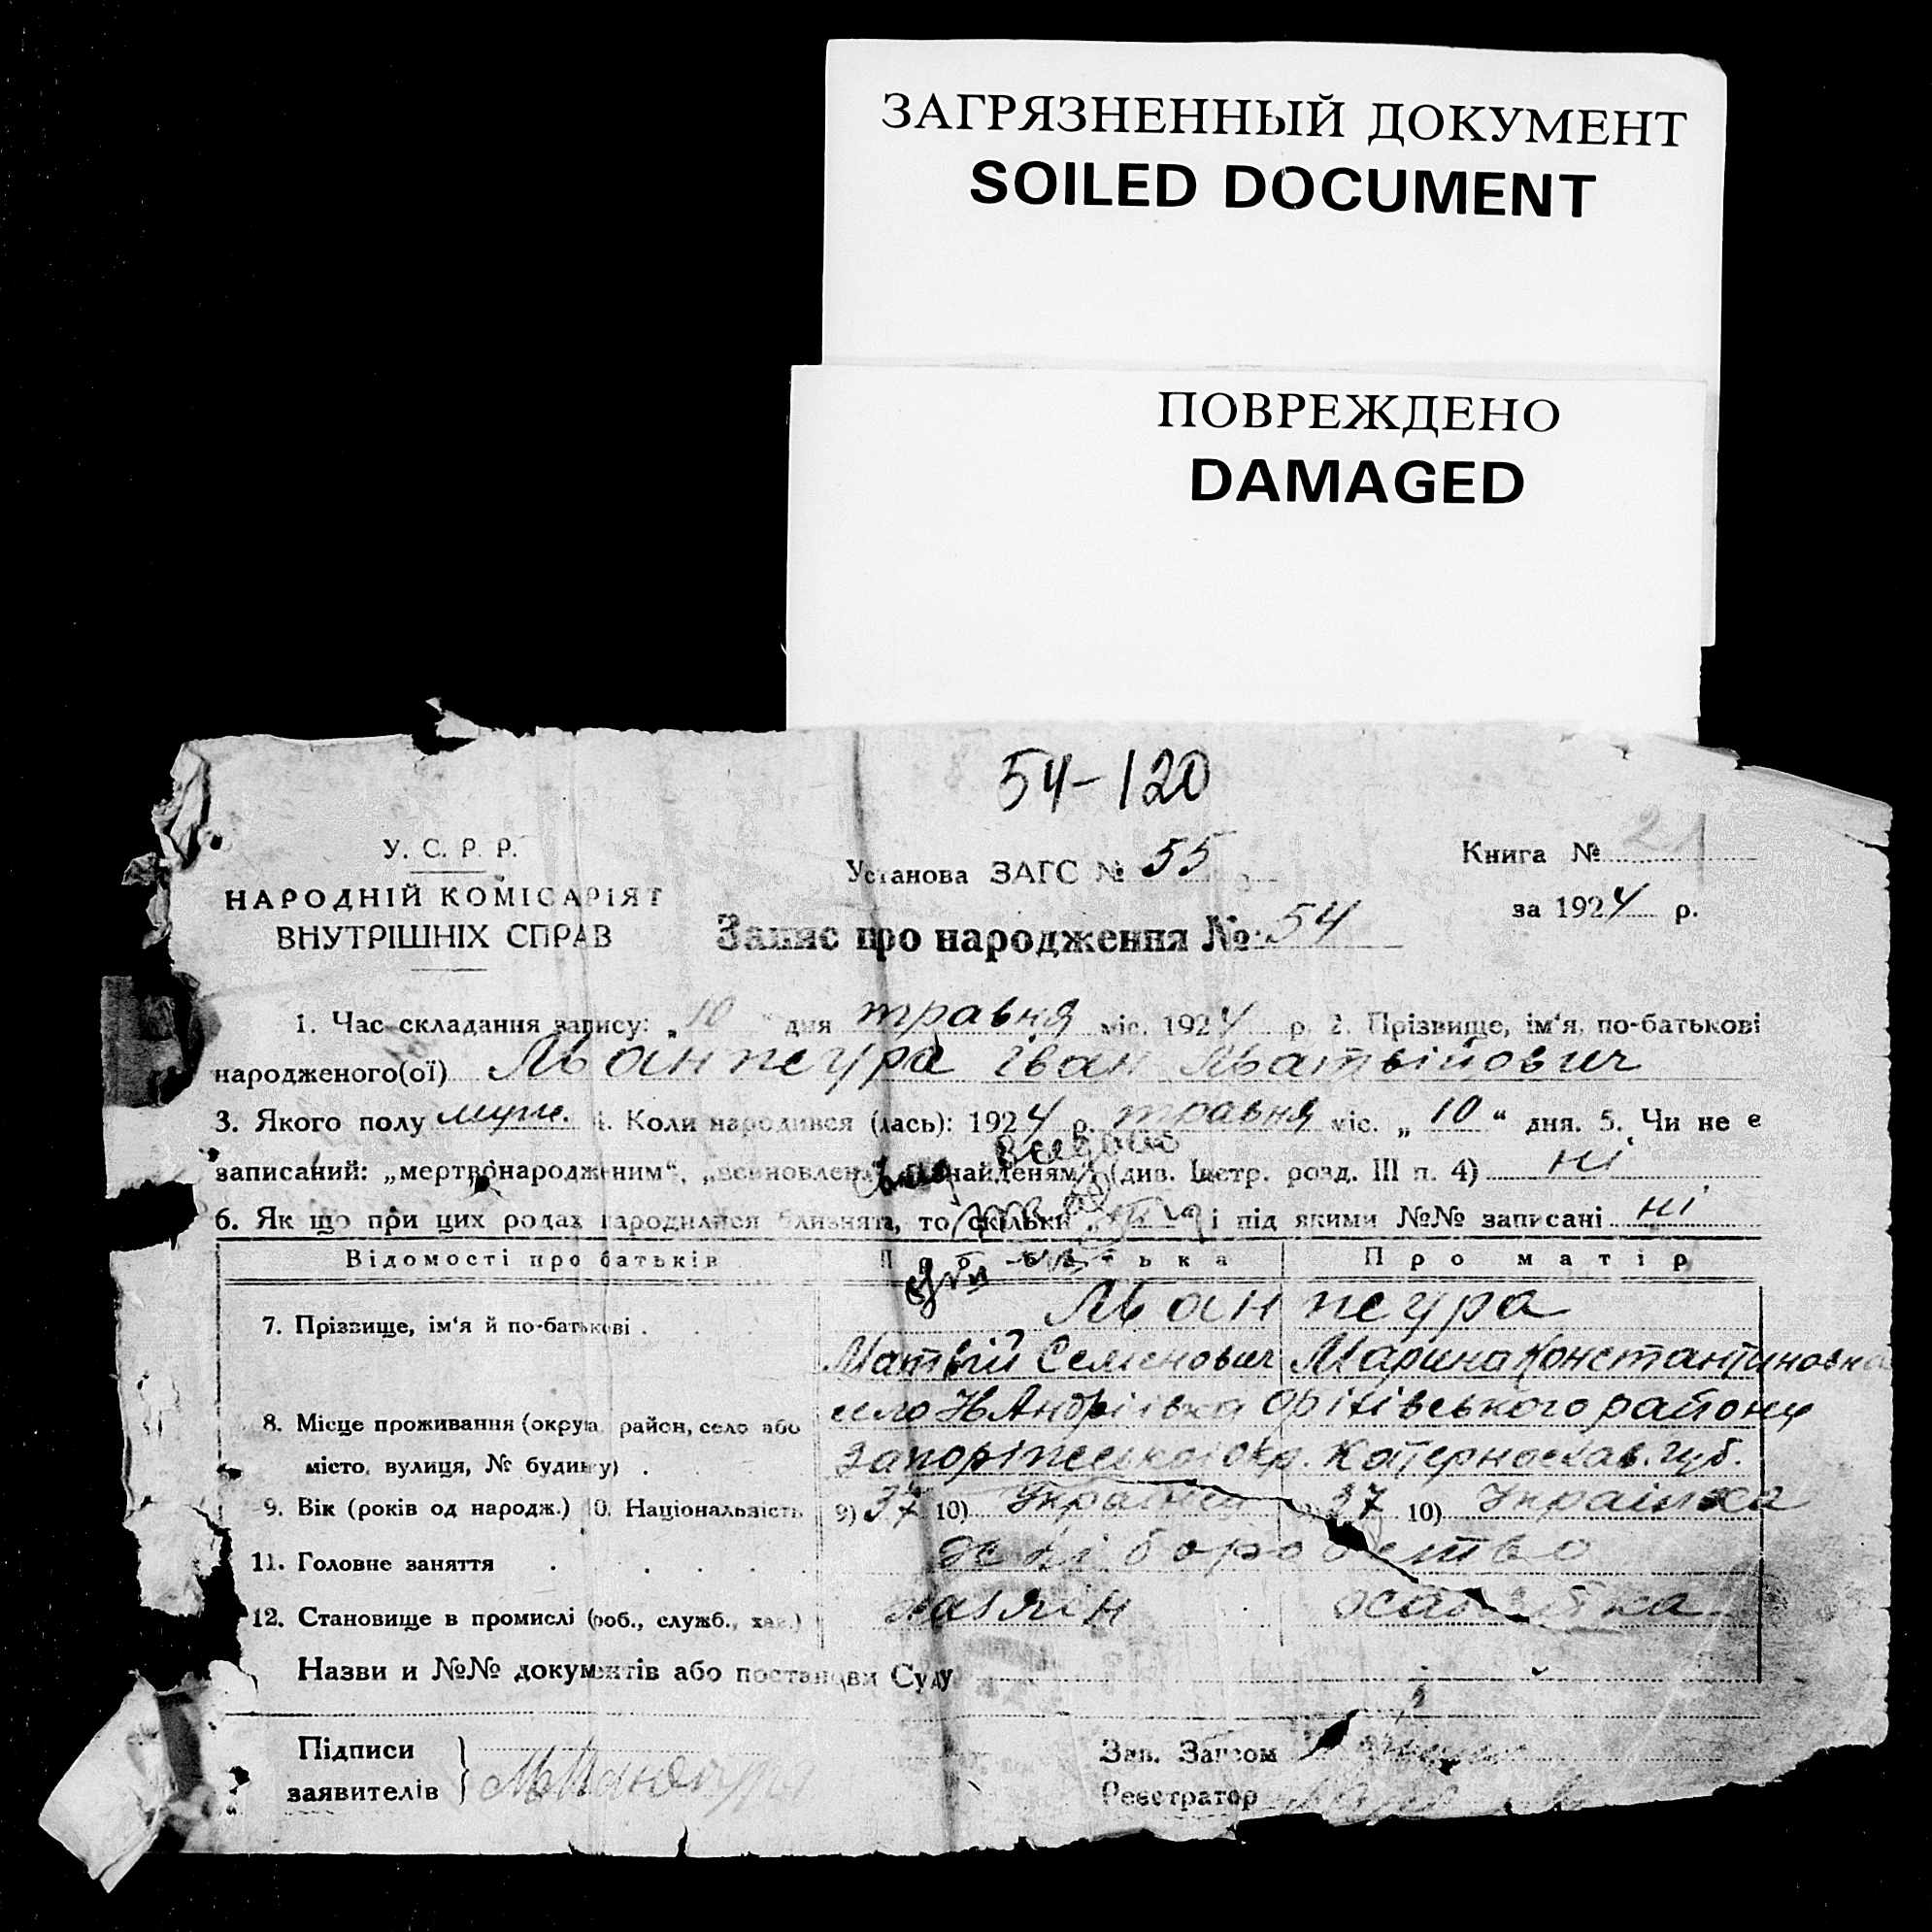 ЗАГРЯЗНЕННЫЙ ДОКУМЕНТ
SOILED DOCUMENT
ПОВРЕЖДЕНО
DAMAGED
54-120
У. С. Р. Р.
Установа ЗАГС № 55
Книга № 21
НАРОДНІЙ КОМІСАРІЯТ
за 1924 р.
ВНУТРІШНІХ СПРАВ
Запис про народження № 54
1. Час складання запису: „10" дня травня міс. 1924 р. 2. Прізвище, ім'я, по-батькові
народженого(ої) Манжура Іван Матвійович
3. Якого полу муж. 4. Коли народився (лась): 1924 р. травня міс. „10" дня. 5. Чи не є
записаний: „мертвонародженим", (див. Інстр. розд. III п. 4) ні
6. Як що при цих родах народилися близнята, то скільки і під якими №№ записані ні
Відомості про батьків Про батька Про матір
7. Прізвище, ім'я й по-батькові . Манжура
Матвій Семенович Марина Константиновна
8. Місце проживання (округа, район, село або село Н Андріївка Оріхівського району
місто, вулиця, № будинку) . Запоріжської Окр. Катеринослав. губ.
9. Вік (років од народж.) 10. Національність 9) 37 10) Українец 9) 37 10) Українка
11. Головне заняття хліборобство
12. Становище в промислі (роб., служб., хаз.) хазяїн хазяйка
Назви и №№ документів або постанови Суду
Підписи
заявителів
Зав. Загсом
Реєстратор